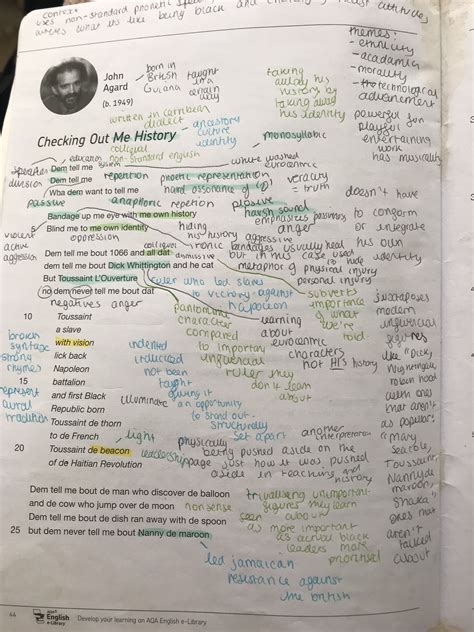 context
uses non-standard phonetic
what it's like being black and
attitudes
themes:
- ethnicity
- acadamia
- morality
- technological
advancement
powerful fun
playful
entertaining
work
has musicality
John
Agard
(b. 1949)
born in
British
Guiana
taught
in a
certain
way
taking
away his
history by
taking away
his identity
written in carribean
dialect
ancestory
culture
identity
Checking Out Me History
monosyllabic
colloquial
non-standard english
education
speeches
division
Dem tell me
Dem tell me
Wha dem want to tell me
white washed
eurocentric
repetition
phonetic representation
veracity
= truth
hard assonance of
passive
anaphoric repetion
plosive
harsh sound
emphasizes
anger
doesn't have
to congorm
or integrate
Bandage up me eye with me own history
5 Blind me to me own identity
oppression
hiding
his history
aggressive
violent
active
aggression
Dem tell me bout 1066 and all dat
dem tell me bout Dick Whittington and he cat
But Toussaint L'Ouverture
no dem never tell me bout dat
dismissive
ironic
bandages usually heal his own
but in this case used to hide
identity
metaphor of physical injury
personal injury
ruler who led slaves
to victory against
napoleon
subverts
importance
of what
we're
told
negatives anger
10 Toussaint
a slave
with vision
lick back
Napoleon
15 battalion
and first Black
Republic born
Toussaint de thorn
to de French
20 Toussaint de beacon
of de Haitian Revolution
broken
syntax
strong
rhymes
represent
aural
tradition
pantomime
character
compared
to important
influencial
ruler they
don't learn
about
learning
about
eurocentric
characters
not HIS history
indented
not been
taught
giving it
an opportunity
to stand out
structurally
set apart
illuminate
light
leadership
another
interpretation
physically
being pushed aside on the
page just how it was pushed
aside in teachings and
history
juxtaposes
modern
influencial
figures
like "Dick,
Nightingale,
Robin hood
with ones
that aren't
as popular:
"mary
Seacole,
Toussaint,
Nanny de
maroon,
Shaka"
ones not
aren't
talked
about
Dem tell me bout de man who discover de balloon
and de cow who jump over de moon
Dem tell me bout de dish ran away with de spoon
25 but dem never tell me bout Nanny de maroon
nonsense
trivialising unimportant
figures they learn
about
seen
as more important
as actual black
leaders more
prioritised
led jamaican
resistance against
the british
44
AQA
English
e-Library
Develop your learning on AQA English e-Library